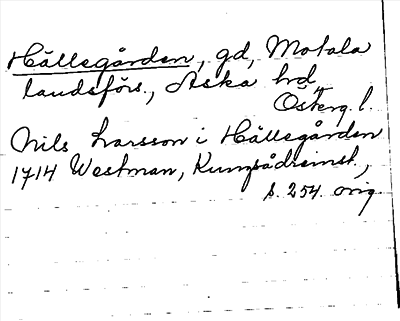 Hällegården, gd, Motala
landsförs., Aska hrd
Österg. l.
Nils Larsson i Hällegården
1714 Westman,
s. 254. orig.